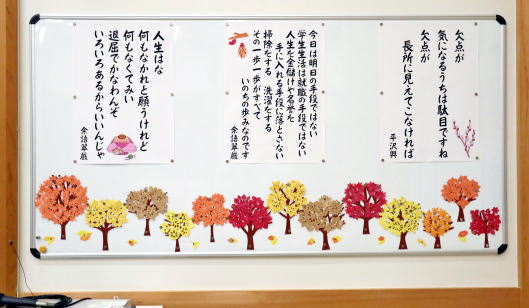 欠点が
気になるうちは駄目ですね
欠点が
長所に見えてこなければ
平沢興
今日は明日の手段ではない
学生生活は就職の手段ではない
人生を金儲けや名誉を
手に入れる手段に落とさない
掃除をする 洗濯をする
その一歩一歩がすべて
いのちの歩みなのです
余語翠巌
人生はな
何もなかれと願うけれど
何もなくてみい
退屈でかなわんぞ
いろいろあるからいいんじゃ
余語翠巌